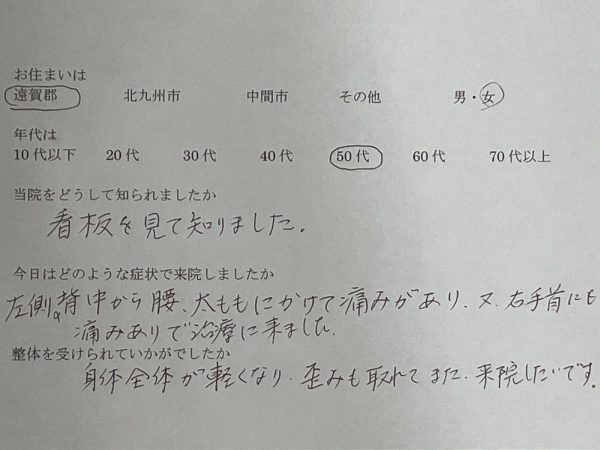 お住まいは
遠賀郡 北九州市 中間市 その他 男・女
年代は
10代以下 20代 30代 40代 50代 60代 70代以上
当院をどうして知られましたか
看板を見て知りました。
今日はどのような症状で来院しましたか
左側の背中から腰、太ももにかけて痛みがあり、又、右手首にも
痛みありで治療に来ました。
整体を受けられていかがでしたか
身体全体が軽くなり、歪みも取れてまた、来院したいです。